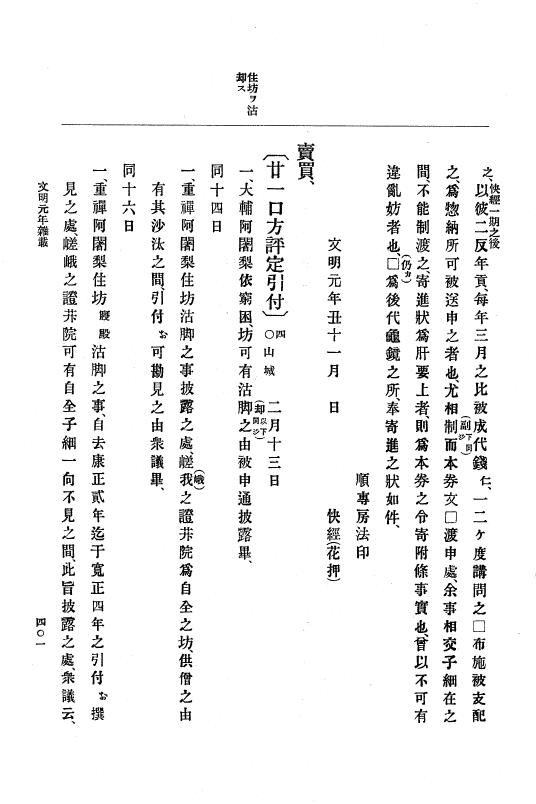 住坊ヲ沽
却ス
快經一期之後
之、以彼二反年貢、每年三月之比被成代錢仁、一二ケ度講問之□布施被支配
之、爲惣納所可被送申之者也、尤相制而本券文□渡申處、余事相交子細在之
(副)
(下同ジ)
間、不能制渡之、寄進狀爲肝要上者、則爲本券之令寄附條事實也、曾以不可有
違亂妨者也、□爲後代龜鏡之所、奉寄進之狀如件、
(仍カ)
文明元年丑十一月　日　　快經(花押)
順專房法印
賣買、
〔廿一口方評定引付〕四〇山城　二月十三日
一、大輔阿闍梨依窮困、坊可有沽脚之由被申通披露畢、
(却以下同ジ)
同十四日
一、重禪阿闍梨住坊沽脚之事披露之處、嵯我之證菩院爲自全之坊、供僧之由
(峨)
有其沙汰之間、引付お可勘見之由衆議畢、
同十六日
一、重禪阿闍梨住坊寢殿沽脚之事、自去康正貳年迄于寬正四年之引付お撰
見之處、嵯峨之證菩院可有自全子細一向不見之間、此旨披露之處、衆議云、
文明元年雜載
四〇一